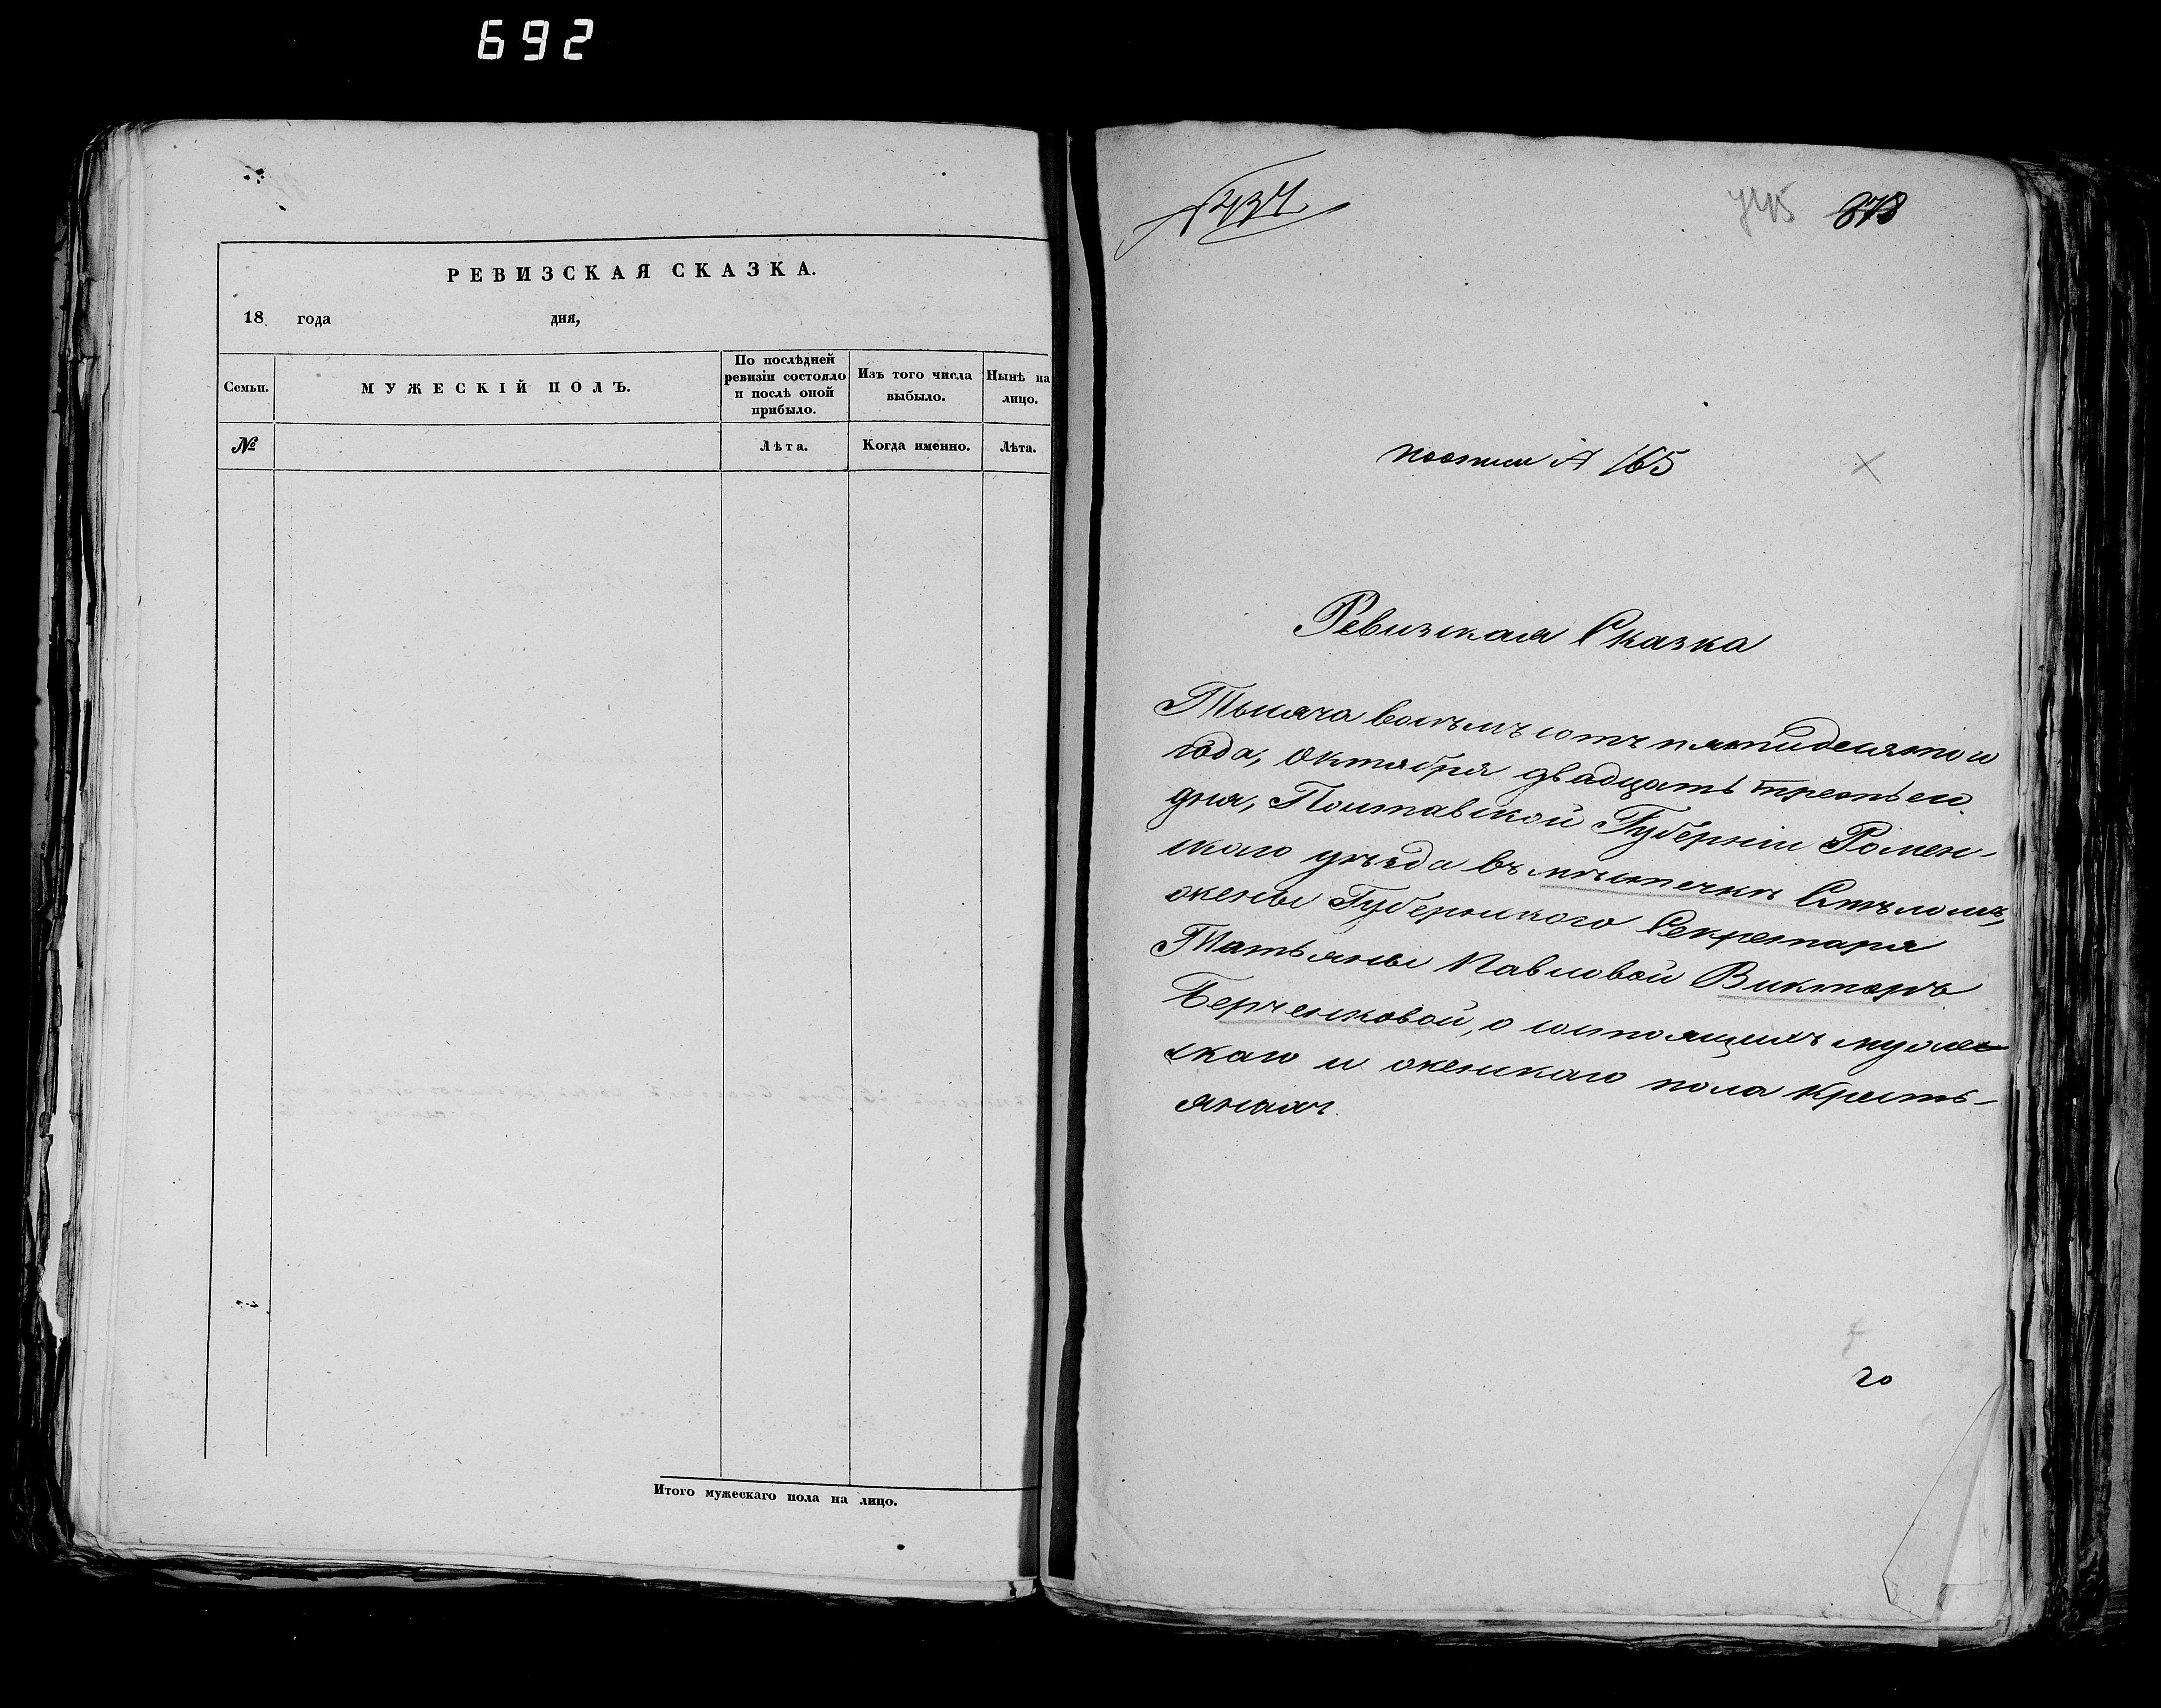 692
РЕВИЗСКАЯ СКАЗКА.
18 года дня,
Семьи.
МУЖЕСКІЙ ПОЛЪ.
По послѣдней
ревизіи состояло
и послѣ оной
прибыло.
Изъ того числа
выбыло.
Нынѣ на
лицо.
№
Лѣта.
Когда именно.
Лѣта.
Итого мужескаго пола на лицо.
745 878
165
Ревизская Сказка
Тысяча восѣмъ сотъ пятидесятого
года, Октября двадцать третьего
дня, Полтавской Губерніи Ромен-
скаго уѣзда въ мѣстечкѣ Смѣломъ,
жены Губернского Секретаря
Татьяны Павловой Викторъ
Берченковой, о состоящихъ муже
скаго и женскаго пола кресть-
янахъ.
20